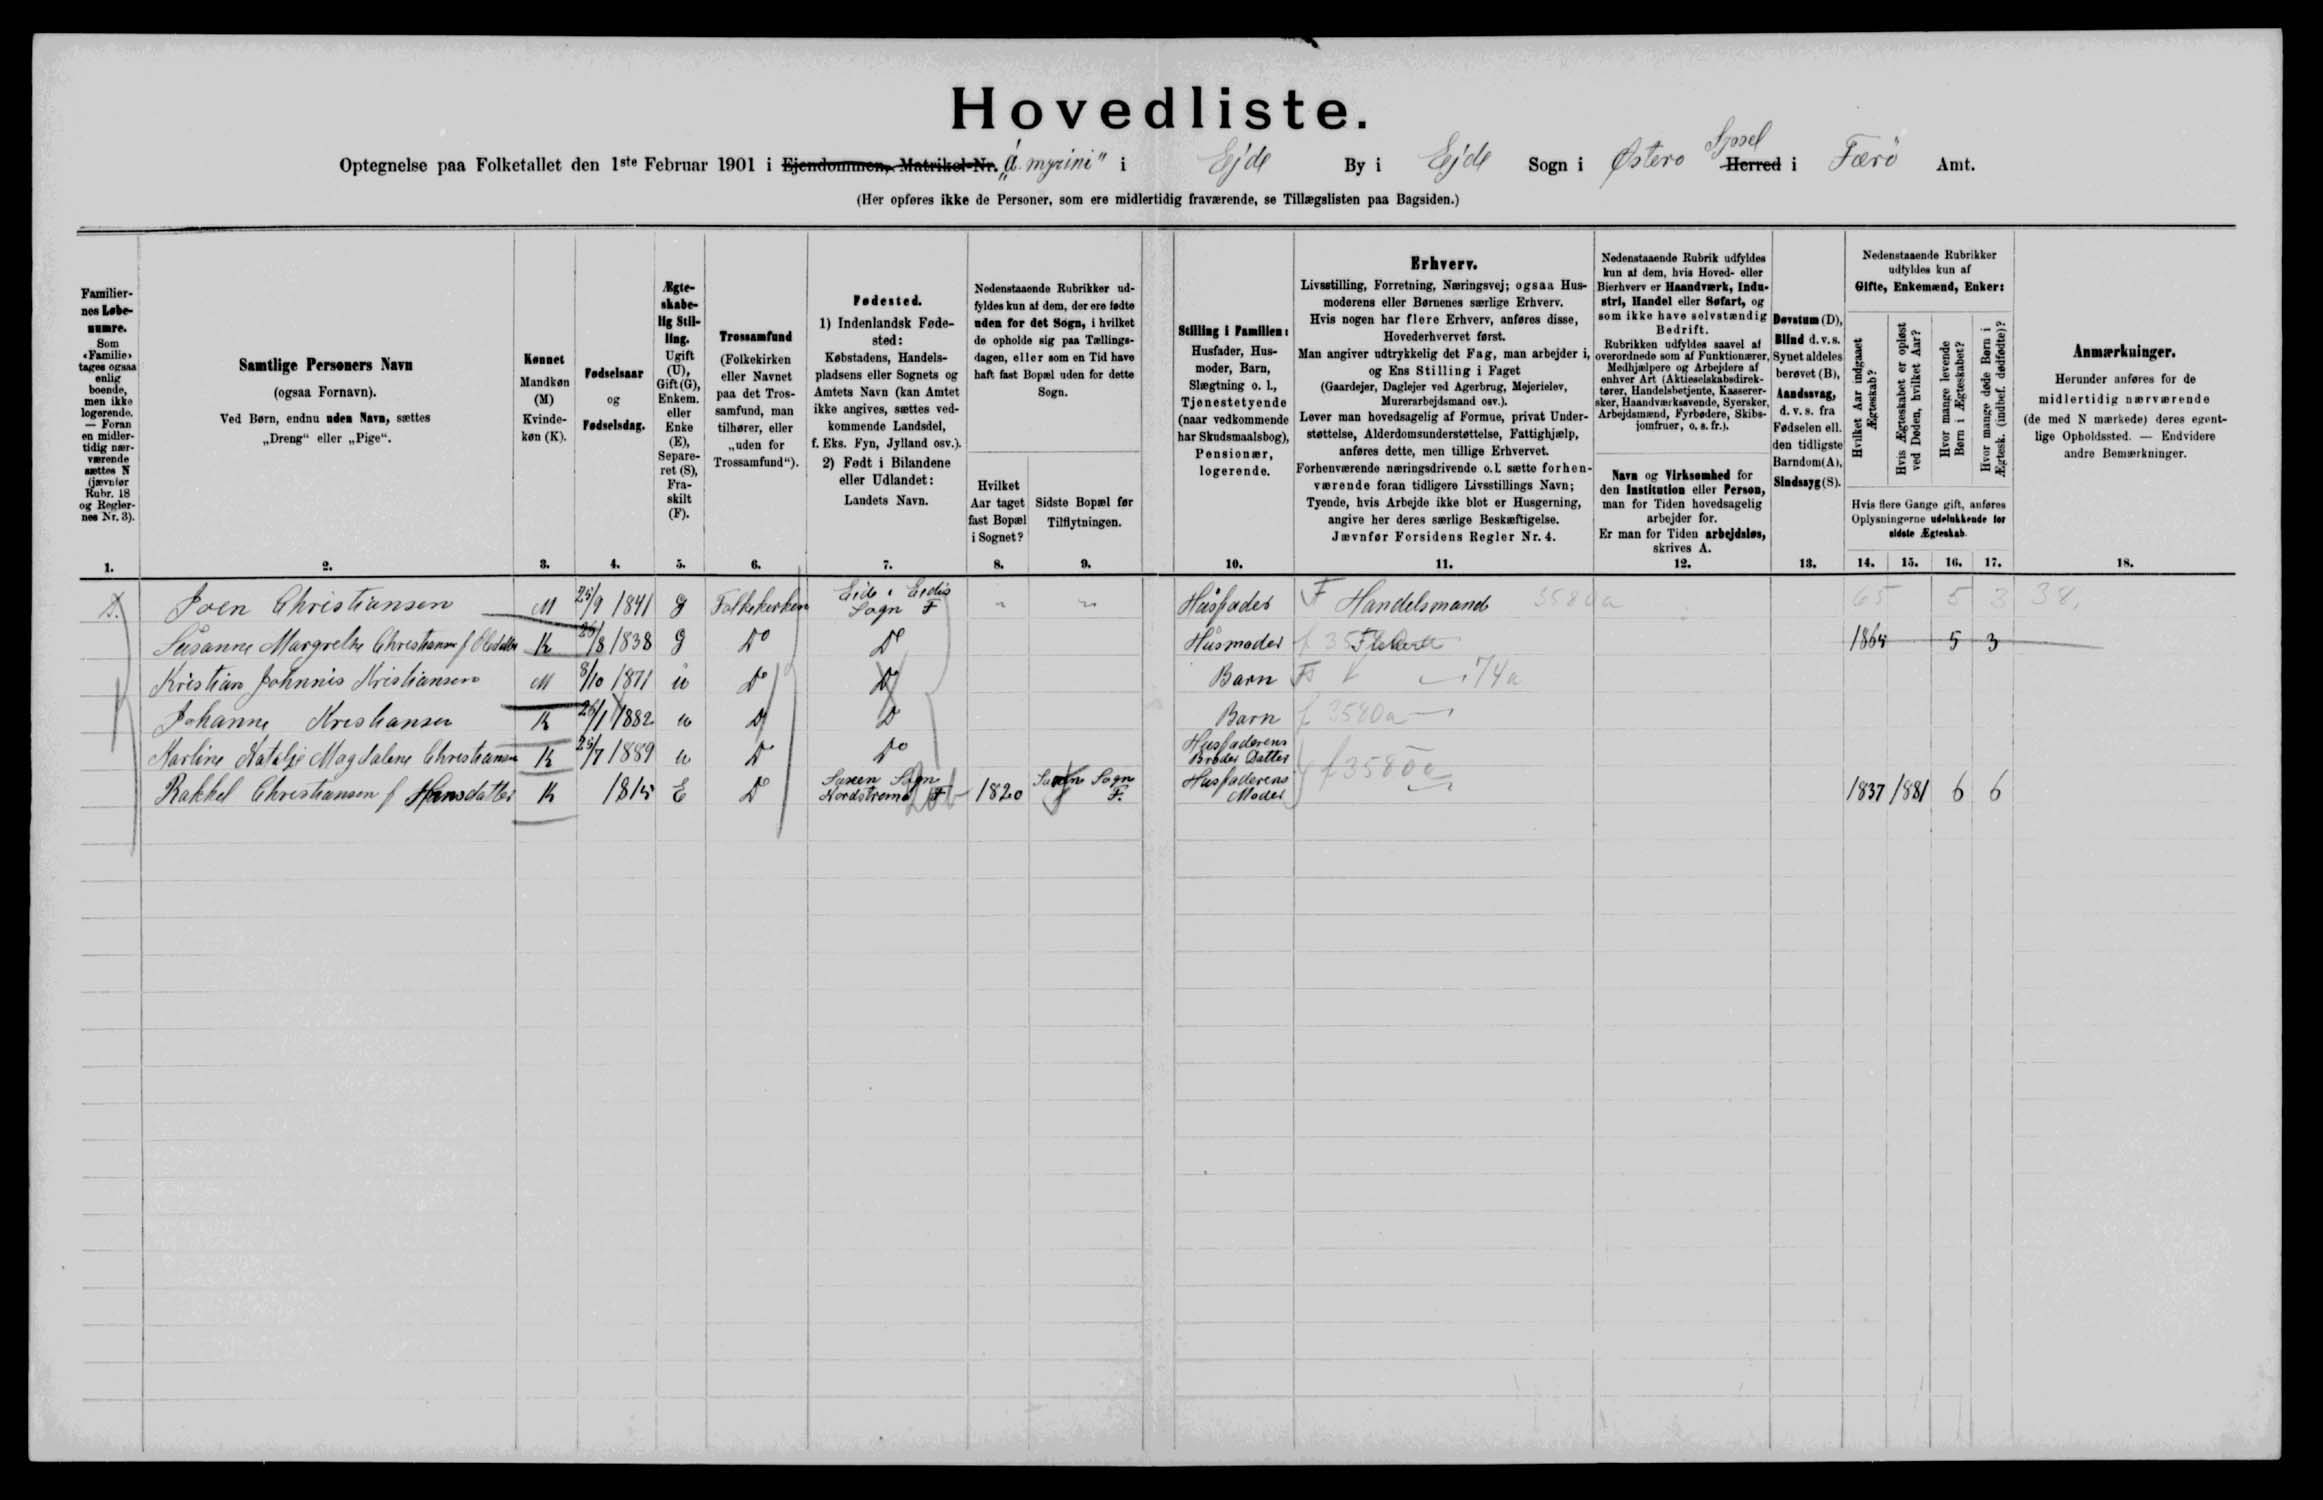 Hovedliste.
Optegnelse paa Folketallet den 1ste Februar 1901 i Ejendommen, Matrikel-Nr. „á myrini" i Ejde By i Ejde Sogn i Østero Syssel Herred i Færö Amt.
(Her opføres ikke de Personer, som ere midlertidig fraværende, se Tillægslisten paa Bagsiden.)
Familier-
nes Løbe-
numre.
Som
«Familie»
tages ogsaa
enlig
boende,
men ikke
logerende.
— Foran
en midler-
tidig nær-
værende
sættes N
(jævnfør
Rubr. 18
og Regler-
nes Nr. 3).
1.
Samtlige Personers Navn
(ogsaa Fornavn).
Ved Børn, endnu uden Navn, sættes
„Dreng" eller „Pige".
2.
Kønnet
Mandkøn
(M)
Kvinde-
køn (K).
3.
Fødselsaar
og
Fødselsdag.
4.
Ægte-
skabe-
lig Stil-
ling.
Ugift
(U),
Gift (G),
Enkem.
eller
Enke
(E),
Separe-
ret (S),
Fra-
skilt
(F).
5.
Trossamfund
(Folkekirken
eller Navnet
paa det Tros-
samfund, man
tilhører, eller
„uden for
Trossamfund").
6.
Fødested.
1) Indenlandsk Føde-
sted:
Købstadens, Handels-
pladsens eller Sognets og
Amtets Navn (kan Amtet
ikke angives, sættes ved-
kommende Landsdel,
f. Eks. Fyn, Jylland osv.).
2) Født i Bilandene
eller Udlandet:
Landets Navn.
7.
Nedenstaaende Rubrikker ud-
fyldes kun af dem, der ere fødte
uden for det Sogn, i hvilket
de opholde sig paa Tællings-
dagen, eller som en Tid have
haft fast Bopæl uden for dette
Sogn.
Hvilket
Aar taget
fast Bopæl
i Sognet?
8.
Sidste Bopæl før
Tilflytningen.
9.
Stilling i Familien:
Husfader, Hus-
moder, Barn,
Slægtning o. l.,
Tjenestetyende
(naar vedkommende
har Skudsmaalsbog),
Pensionær,
logerende.
10.
Erhverv.
Livsstilling, Forretning, Næringsvej; ogsaa Hus-
moderens eller Børnenes særlige Erhverv.
Hvis nogen har flere Erhverv, anføres disse,
Hovederhvervet først.
Man angiver udtrykkelig det Fag, man arbejder i,
og Ens Stilling i Faget
(Gaardejer, Daglejer ved Agerbrug, Mejerielev,
Murerarbejdsmand osv.).
Lever man hovedsagelig af Formue, privat Under-
støttelse, Alderdomsunderstøttelse, Fattighjælp,
anføres dette, men tillige Erhvervet.
Forhenværende næringsdrivende o. l. sætte forhen-
værende foran tidligere Livsstillings Navn;
Tyende, hvis Arbejde ikke blot er Husgerning,
angive her deres særlige Beskæftigelse.
Jævnfør Forsidens Regler Nr. 4.
11.
Nedenstaaende Rubrik udfyldes
kun af dem, hvis Hoved- eller
Bierhverv er Haandværk, Indu-
stri, Handel eller Søfart, og
som ikke have selvstændig
Bedrift.
Rubrikken udfyldes saavel af
overordnede som af Funktionærer,
Medhjælpere og Arbejdere af
enhver Art (Aktieselskabsdirek-
tører, Handelsbetjente, Kasserer-
sker, Haandværkssvende, Syersker,
Arbejdsmænd, Fyrbødere, Skibs-
jomfruer, o. s. fr.).
Navn og Virksomhed for
den Institution eller Person,
man for Tiden hovedsagelig
arbejder for.
Er man for Tiden arbejdsløs,
skrives A.
12.
Døvstum (D),
Blind d. v. s.
Synet aldeles
berøvet (B),
Aandssvag,
d. v. s. fra
Fødselen ell.
den tidligste
Barndom (A),
Sindssyg (S).
13.
Nedenstaaende Rubrikker
udfyldes kun af
Gifte, Enkemænd, Enker:
Hvilket Aar indgaaet
Ægteskab?
Hvis Ægteskabet er opløst
ved Døden, hvilket Aar?
Hvor mange levende
Børn i Ægteskabet?
Hvor mange døde Børn i
Ægtesk. (indbef. dødfødte)?
Hvis flere Gange gift, anføres
Oplysningerne udelukkende for
sidste Ægteskab.
14. 15. 16. 17.
Anmærkninger.
Herunder anføres for de
midlertidig nærværende
(de med N mærkede) deres egent-
lige Opholdssted. — Endvidere
andre Bemærkninger.
18.
Joen Christiansen M 25/9 1841 g Folkekirken Eide i Eidis Sogn F " " Húsfader F Handelsmand 3580a 65 5 3 38,
Súsanne Margrethe Christiansen f K 26/8 1838 g Do Do Húsmoder f 1865 5 3
Kristian Johannis Kristiansen M 8/10 1871 ú Do Do Barn 74a
Johanne Kristiansen K 26/1 1882 u Do Do Barn f 3580a
Karline Natalje Magdalene Christiansen K 25/7 1889 u Do Do Husfaderens Broder Datter
Rakkel Christiansen f Hansdatter K 1815 E Do Saxen Sogn Nordstromø F 1820 Saxen Sogn F. Husfaderens Moder f 3580a 1837 1881 6 6